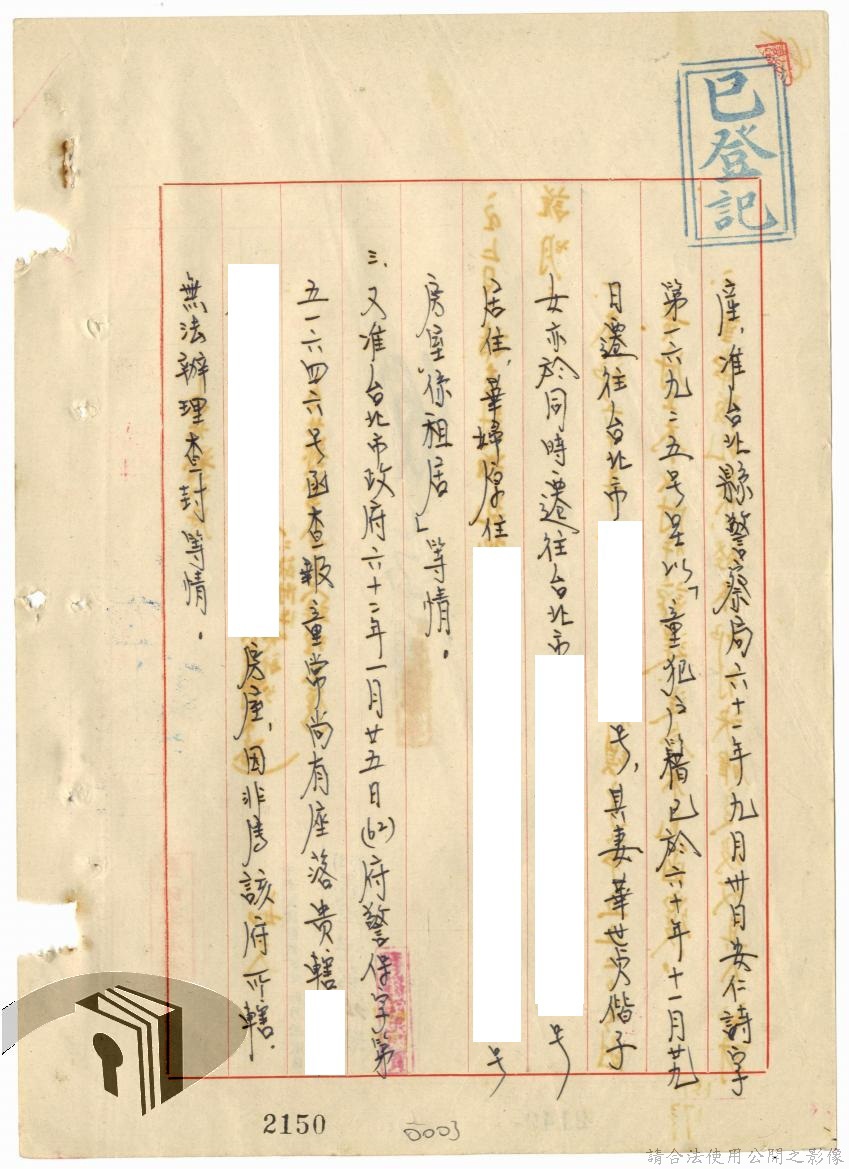 已登記
產，准台北縣警察局六十一年九月卅日安仁詩字
第一六九二五号呈以「童犯户籍已於六十年十一月廿九
日遷往台北市
号，其妻華世贞偕子
女亦於同時遷往台北市
号
居住，華婦原住
号
房室係租居」等情。
三、又准台北市政府六十二年一月廿五日(62)府警保字第
五一六四六号函查報童常尚有座落贵轄
房屋，因非馬該府所轄．
無法辦理查封等情．
2150
0003
請合法使用公開之影像